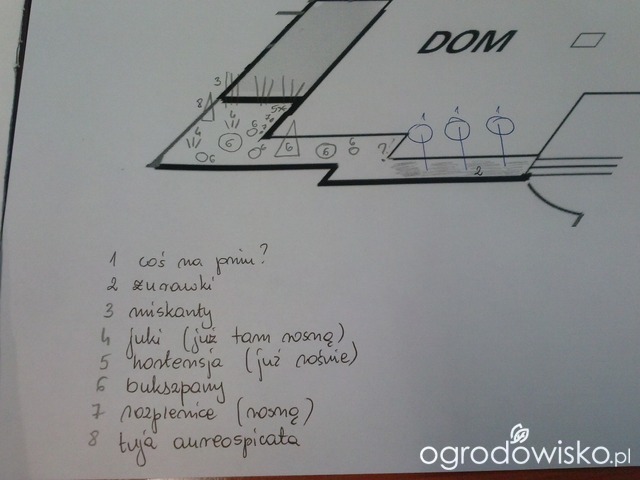 DOM
3
8
4
5x
7
4
6
6
6
6
6
6
6
?!
1 1 1
2
1 coś na pniu?
2 żurawki
3 miskanty
4 juki (już tam rosną)
5 hortensja (już rośnie)
6 bukszpany
7 rozplenice (rosną)
8 tuja aureospicata
ogrodowisko.pl